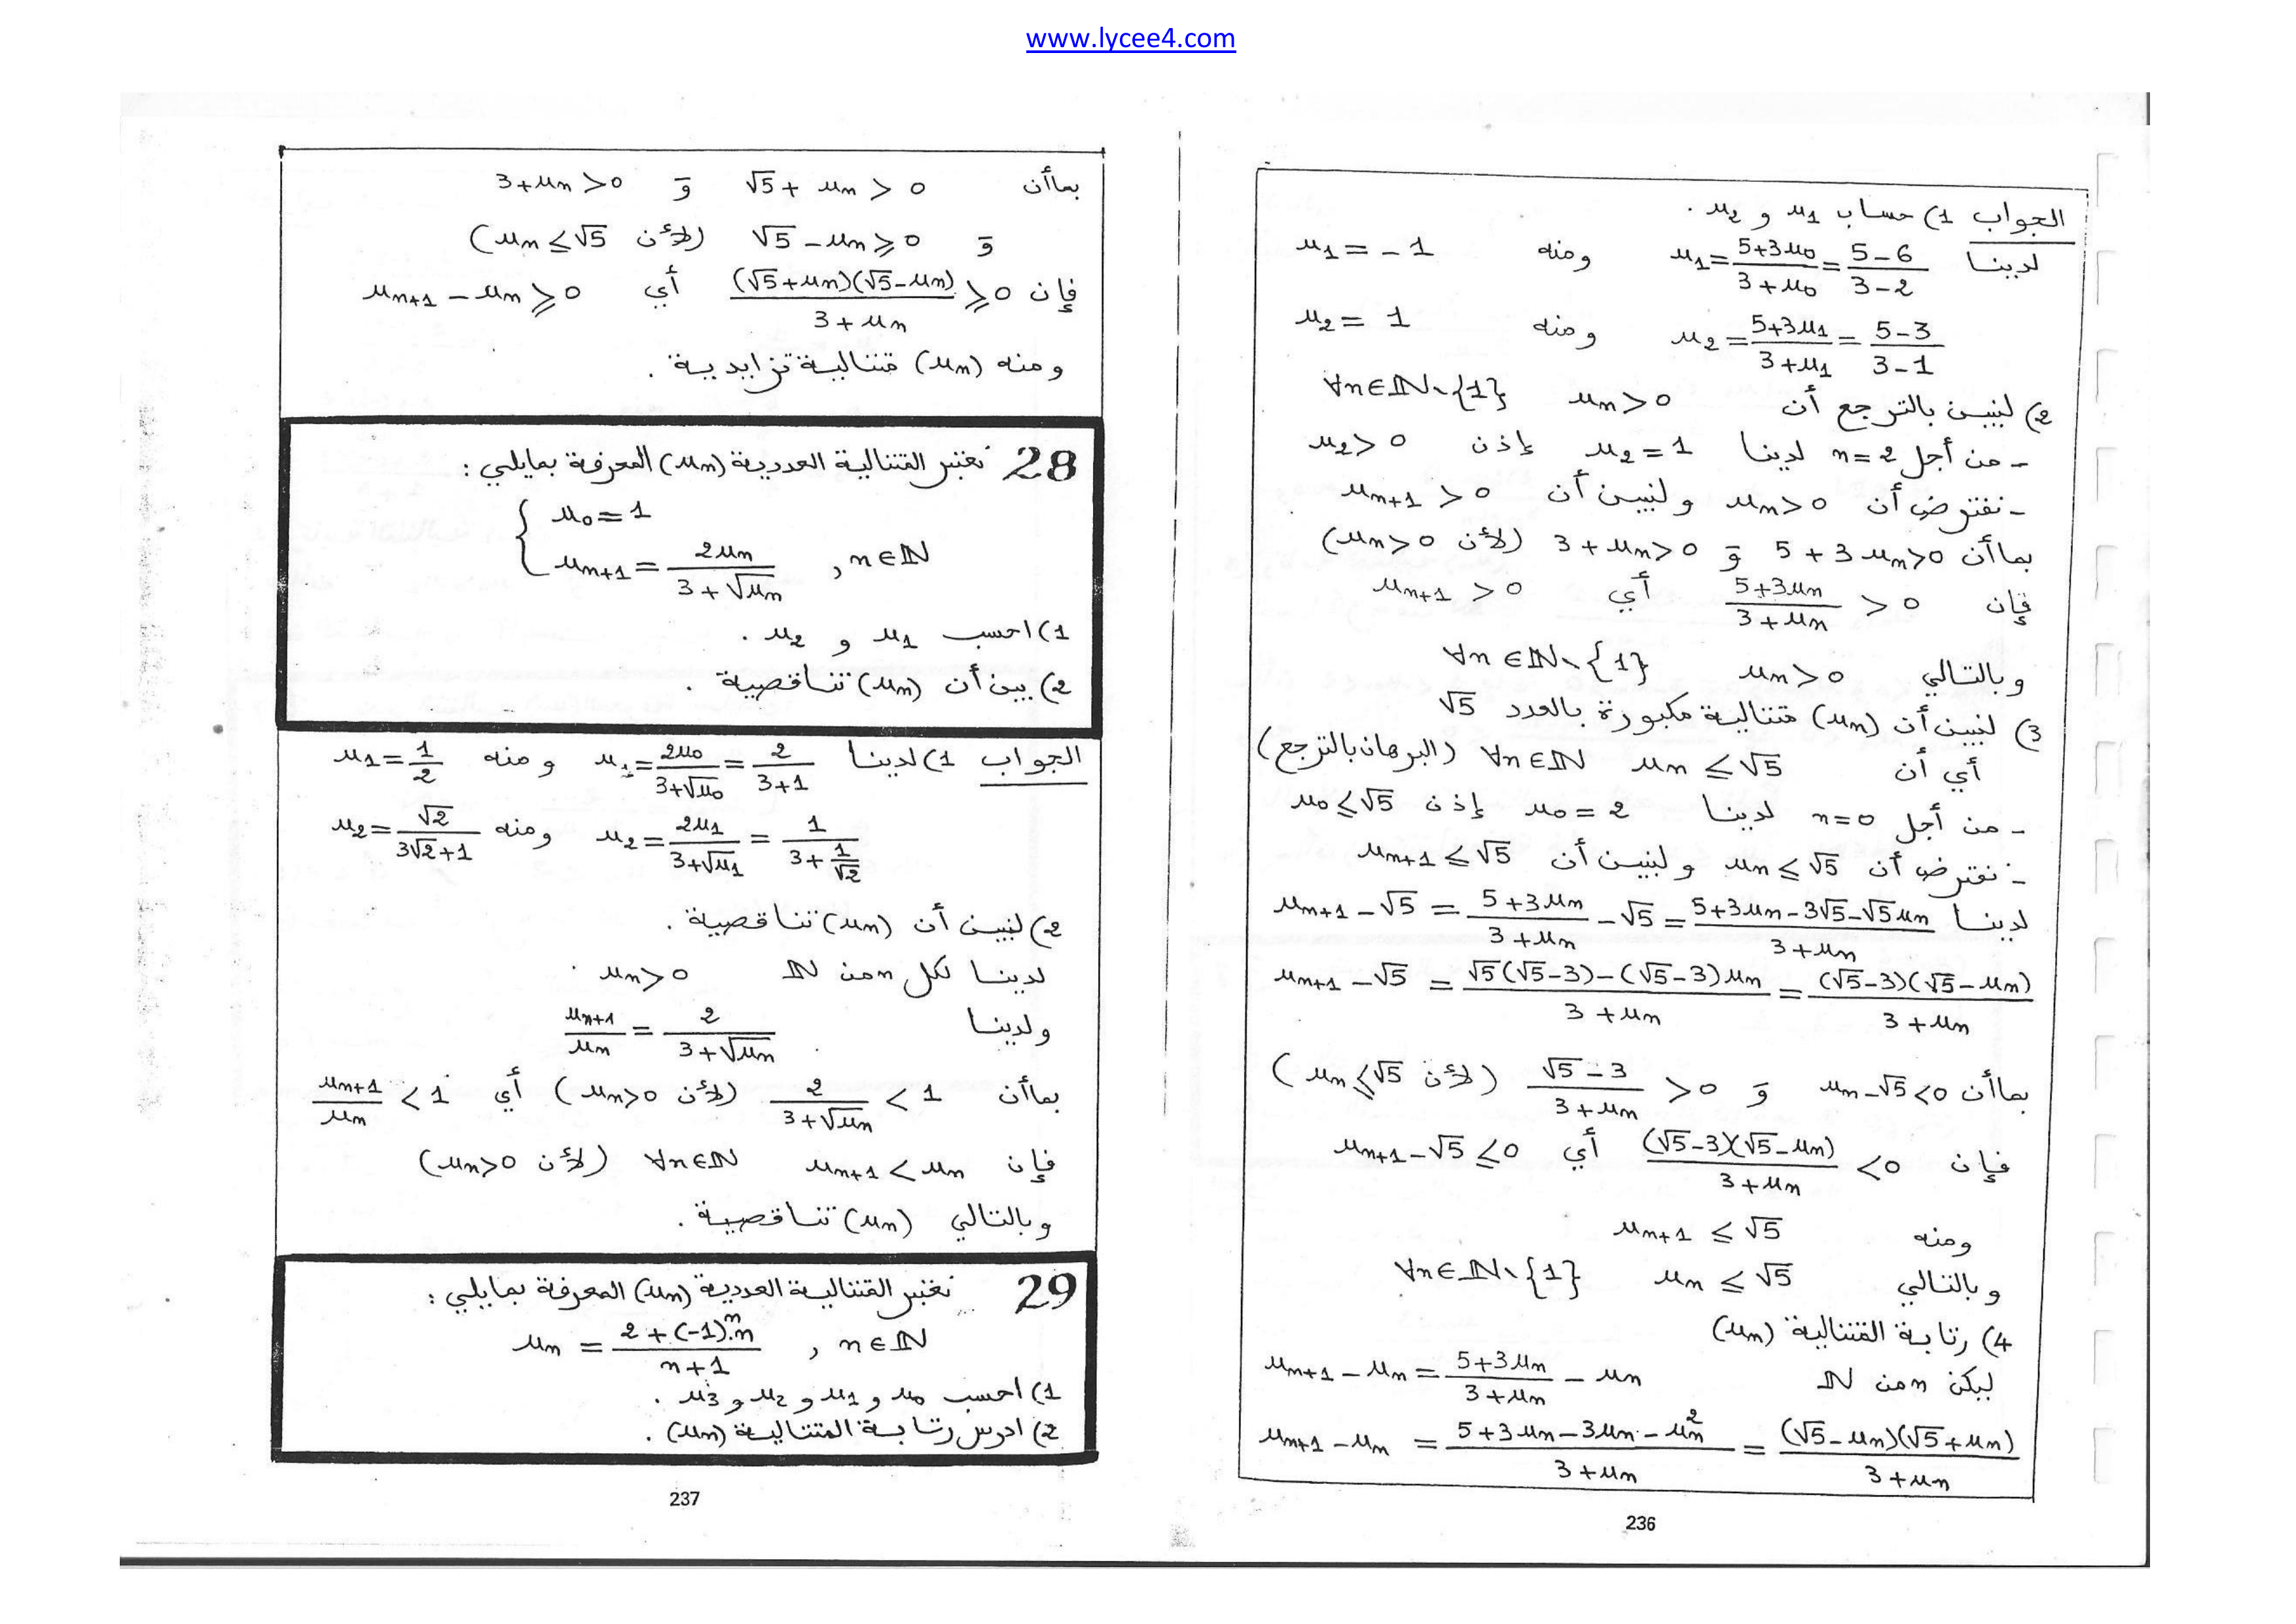 www.lycee4.com
الجواب 1) حساب u₁ و u₂ .
لدينا u₁ = (5+3u₀)/(3+u₀) = (5-6)/(3-2) ومنه u₁ = -1
u₂ = (5+3u₁)/(3+u₁) = (5-3)/(3-1) ومنه u₂ = 1
2) لنبين بالترجع أن uₙ > 0 ∀n∈ℕ\{1}
- من أجل n=2 لدينا u₂ = 1 إذن u₂ > 0
- نفترض أن uₙ > 0 ولنبين أن uₙ₊₁ > 0
بماأن 5 + 3uₙ > 0 و 3 + uₙ > 0 (لأن uₙ > 0)
فإن (5+3uₙ)/(3+uₙ) > 0 أي uₙ₊₁ > 0
وبالتالي uₙ > 0 ∀n∈ℕ\{1}
3) لنبين أن (uₙ) متتالية مكبورة بالعدد √5
أي أن uₙ ≤ √5 ∀n∈ℕ (البرهان بالترجع)
- من أجل n=0 لدينا u₀ = 2 إذن u₀ ≤ √5
- نفترض أن uₙ ≤ √5 ولنبين أن uₙ₊₁ ≤ √5
لدينا uₙ₊₁ - √5 = (5+3uₙ)/(3+uₙ) - √5 = (5+3uₙ-3√5-√5uₙ)/(3+uₙ)
uₙ₊₁ - √5 = (√5(√5-3)-(√5-3)uₙ)/(3+uₙ) = ((√5-3)(√5-uₙ))/(3+uₙ)
بماأن uₙ-√5 < 0 و (√5-3)/(3+uₙ) > 0 (لأن uₙ ≤ √5)
فإن ((√5-3)(√5-uₙ))/(3+uₙ) < 0 أي uₙ₊₁-√5 ≤ 0
ومنه uₙ₊₁ ≤ √5
وبالتالي uₙ ≤ √5 ∀n∈ℕ\{1}
4) رتابة المتتالية (uₙ)
ليكن n من ℕ uₙ₊₁ - uₙ = (5+3uₙ)/(3+uₙ) - uₙ
uₙ₊₁ - uₙ = (5+3uₙ-3uₙ-uₙ²)/(3+uₙ) = ((√5-uₙ)(√5+uₙ))/(3+uₙ)
236
بماأن √5 + uₙ > 0 و 3+uₙ > 0
و √5 - uₙ ≥ 0 (لأن uₙ ≤ √5)
فإن ((√5+uₙ)(√5-uₙ))/(3+uₙ) ≥ 0 أي uₙ₊₁ - uₙ ≥ 0
ومنه (uₙ) متتالية تزايدية .
28 نعتبر المتتالية العددية (uₙ) المعرفة بمايلي :
u₀ = 1
uₙ₊₁ = 2uₙ/(3+√uₙ) , n∈ℕ
1) احسب u₁ و u₂ .
2) بين أن (uₙ) تناقصية .
الجواب 1) لدينا u₁ = 2u₀/(3+√u₀) = 2/(3+1) ومنه u₁ = 1/2
u₂ = 2u₁/(3+√u₁) = 1/(3+1/√2) ومنه u₂ = √2/(3√2+1)
2) لنبين أن (uₙ) تناقصية .
لدينا لكل n من ℕ uₙ > 0
ولدينا uₙ₊₁/uₙ = 2/(3+√uₙ)
بماأن 2/(3+√uₙ) < 1 (لأن uₙ > 0) أي uₙ₊₁/uₙ < 1
فإن uₙ₊₁ < uₙ ∀n∈ℕ (لأن uₙ > 0)
وبالتالي (uₙ) تناقصية .
29 نعتبر المتتالية العددية (uₙ) المعرفة بمايلي :
uₙ = (2+(-1)ⁿ.n)/(n+1) , n∈ℕ
1) احسب u₀ و u₁ و u₂ و u₃ .
2) ادرس رتابة المتتالية (uₙ) .
237